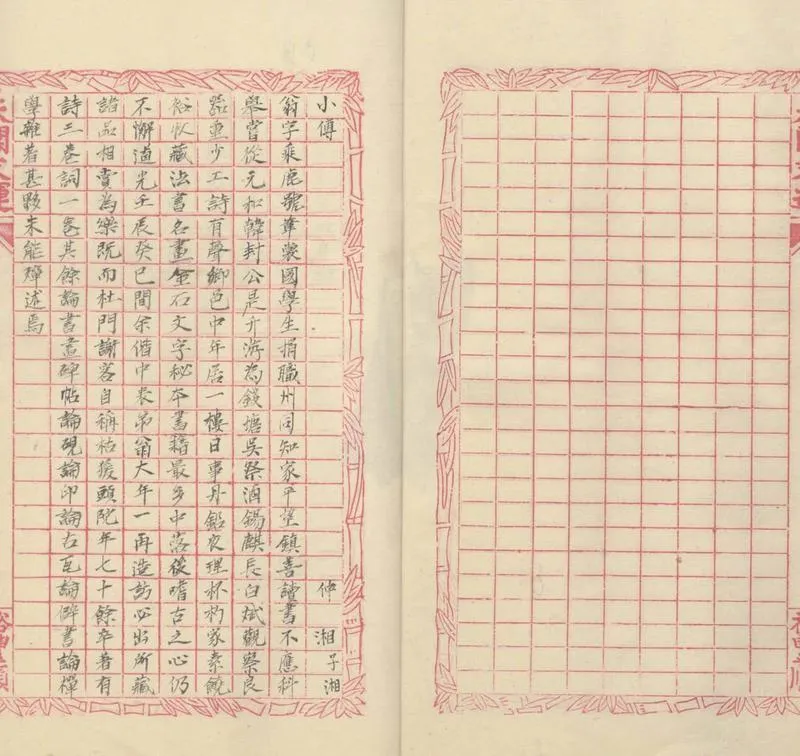 小傳 仲湘 子湘
翁字乘鹿號葦裳國學生捐職州同知家平望鎮善讀書不應科
舉嘗從元和韓封公是升游為錢塘吳祭酒錫麒長白斌觀察良
器重少工詩有聲鄉邑中年居一樓日事丹鉛夜理杯杓家素饒
裕收藏法書名畫金石文字秘本書籍最多中落後嗜古之心仍
不懈道光壬辰癸巳間余偕中表弟翁大年一再造訪必出所藏
諸品相賞為樂既而杜門謝客自稱枯猨頭陀年七十餘卒著有
詩三卷詞一卷其餘論書畫碑帖論硯論印論古瓦論僻書論禪
學雜著甚夥未能殫述焉